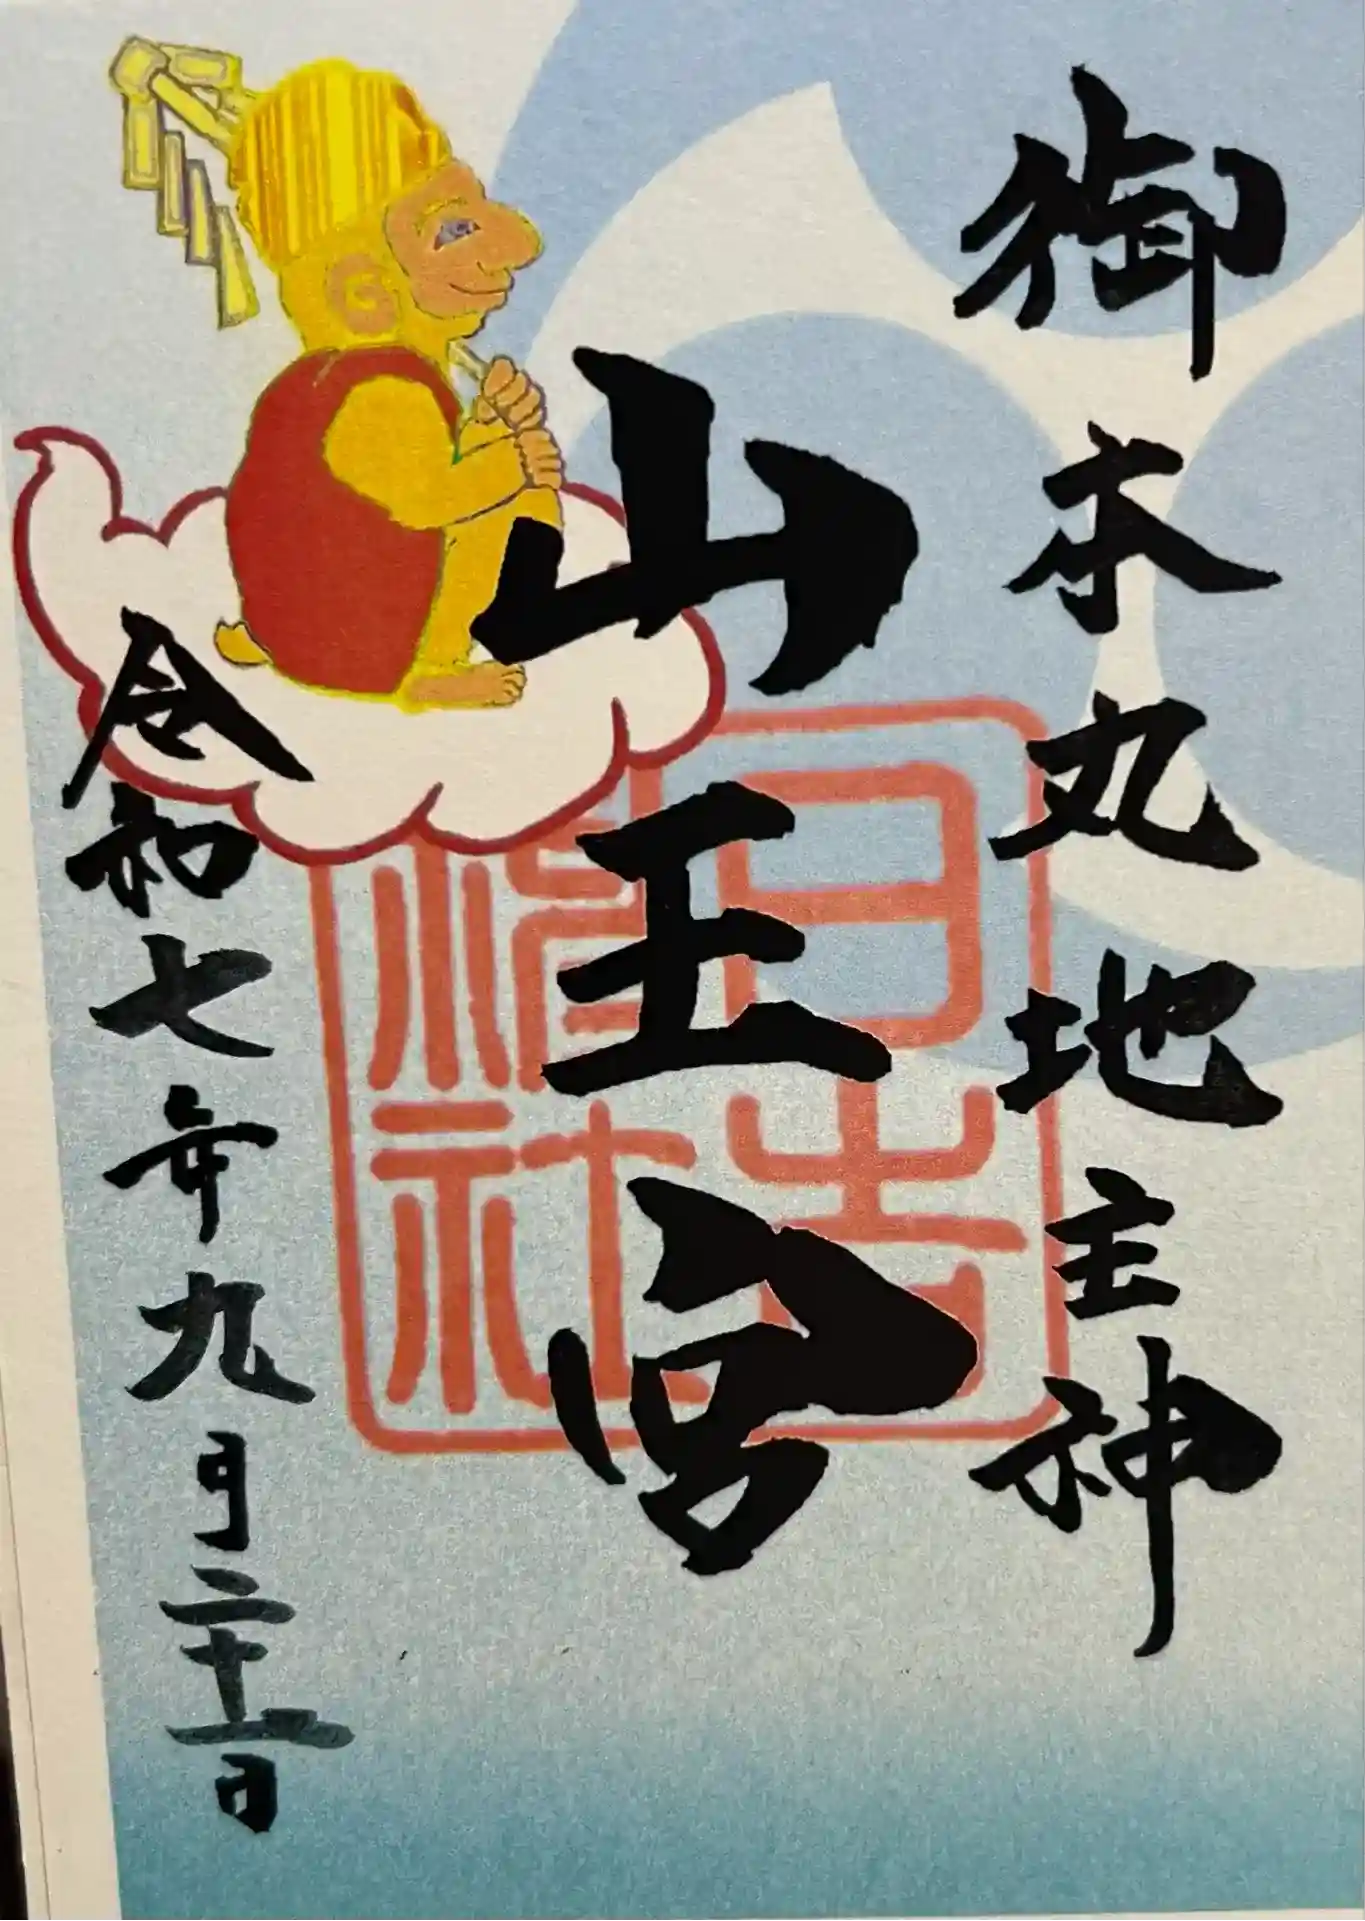 御本丸地主神
山王宮
日吉
神社
令和七年九月二十一日